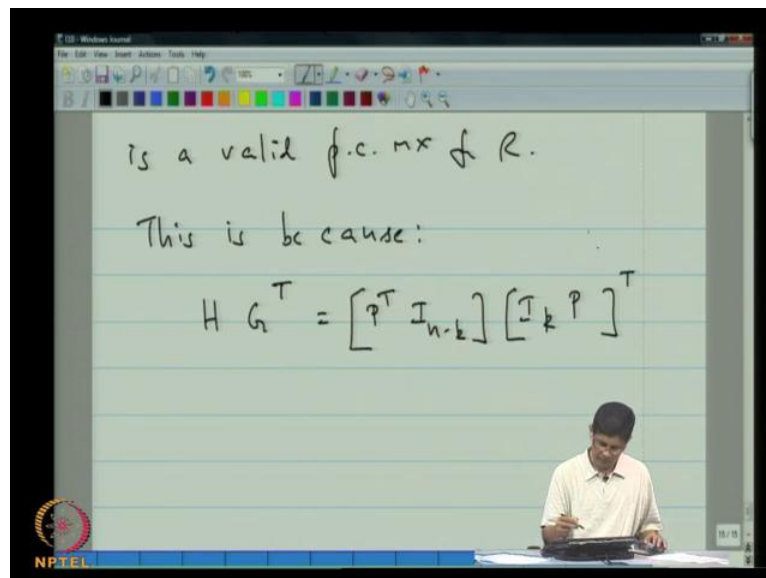 110 - Windows Journal
File Edit View Insert Actions Tools Help
is a valid p.c. mx of R.
This is because:
H G^T = [P^T I_{n-k}] [I_k P]^T
15/15
NPTEL